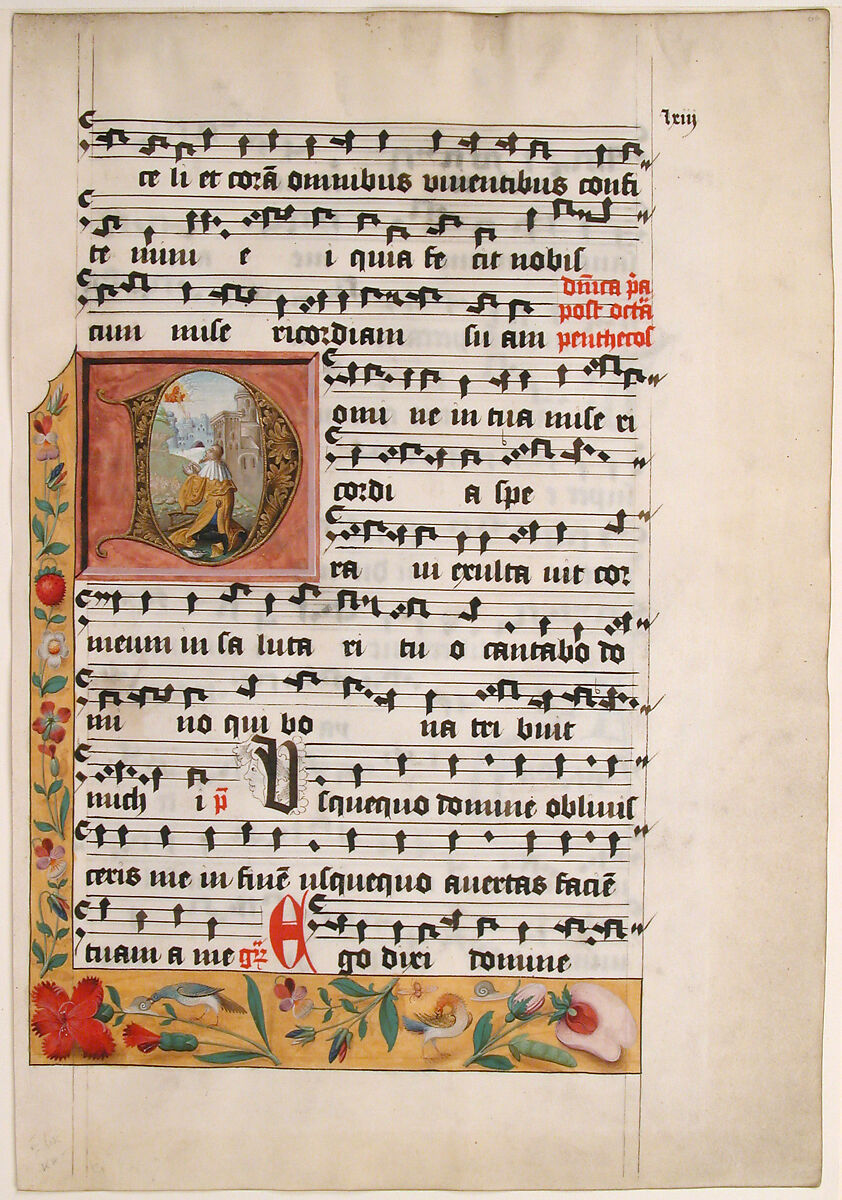 lxiij
ce li et corā omnibus viventibus confi
te mini e i quia fe cit nobis
cum mise ricordiam su am
dn̄ica p̄a
post octā
penthecos
Domi ne in tua mise ri
cordi a spe
ra vi exulta vit cor
meum in sa luta ri tu o cantabo do
mi no qui bo na tri buit
mich i p̄ Vsquequo domine oblivis
ceris me in finē usquequo avertas faciē
tuam a me gr̄ Ego dixi domine